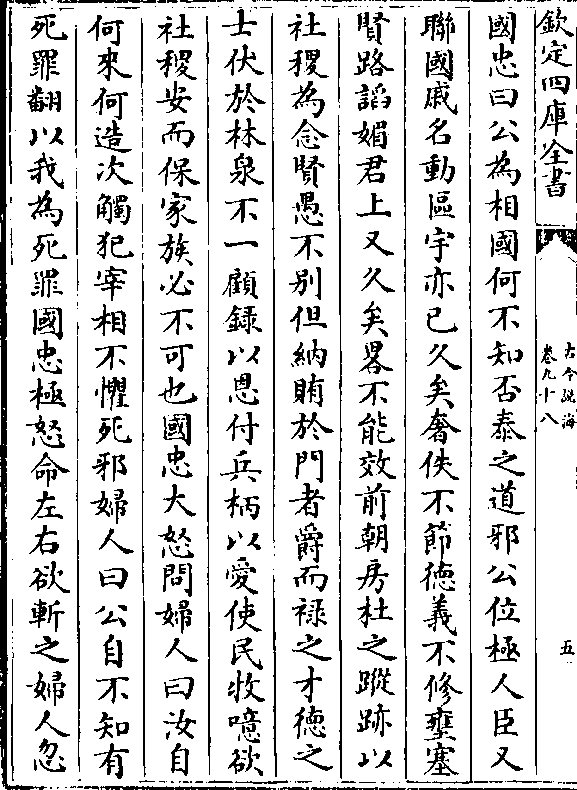 欽定四庫全書
古今說海
卷九十八
五
國忠曰公為相國何不知否泰之道邪公位極人臣又
聯國戚名動區宇亦已久矣奢佚不節德義不修壅塞
賢路謟媚君上又久矣畧不能效前朝房杜之蹤跡以
社稷為念賢愚不別但納賄於門者爵而祿之才德之
士伏於林泉不一顧錄以恩付兵柄以愛使民牧噫欲
社稷安而保家族必不可也國忠大怒問婦人曰汝自
何來何造次觸犯宰相不懼死邪婦人曰公自不知有
死罪翻以我為死罪國忠極怒命左右欲斬之婦人忽